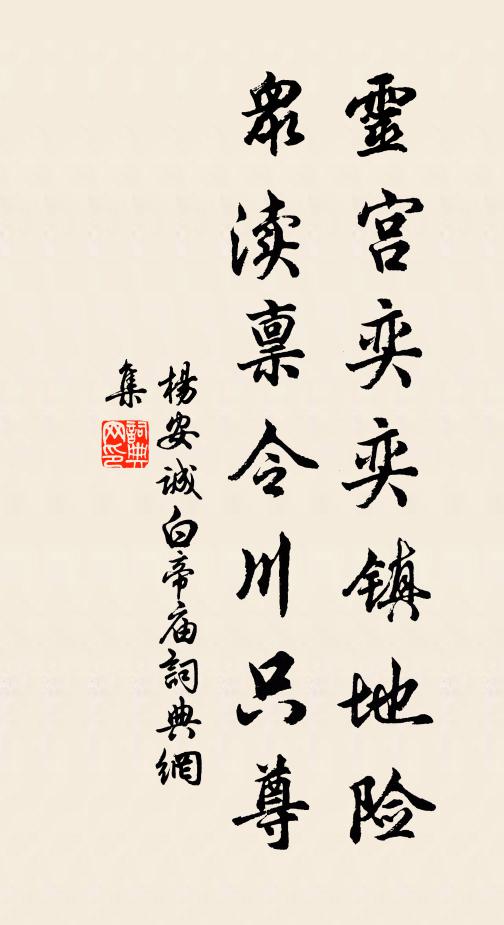 靈宫奕奕镇地险
衆渎禀令川只尊
楊安诚白帝庙詞典網
集
詞典网印